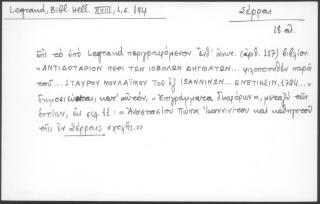 Legrand, Bibl. Hell. XVIII, 1, σ. 194
Σέρραι
18 αι.
Εἰς τὸ ὑπὸ Legrand περιγραφόμενον ἐνθ' ἀνωτ. (ἀριθ. 157) βιβλίον:
"ΑΝΤΙΔΟΤΑΡΙΟΝ ΠΕΡΙ ΤΩΝ ΙΟΒΟΛΩΝ ΔΗΓΜΑΤΩΝ... φιλοπονηθὲν παρὰ
τοῦ... ΣΤΑΥΡΟΥ ΜΟΥΛΑΪΜΟΥ ΤΟΥ ἐξ ΙΩΑΝΝΙΝΩΝ... ΕΝΕΤΙΗΣΙΝ, 1724..."
δημοσιεύονται, κατ' αὐτόν, "Ἐπιγράμματα διαφόρων", μεταξὺ τῶν
ὁποίων, ἐν σελ. 11: "Ἀναστασίου Παπᾶ Ἰωαννινίτου καὶ καθηγητοῦ
τῆς ἐν Σέρραις σχολῆς."